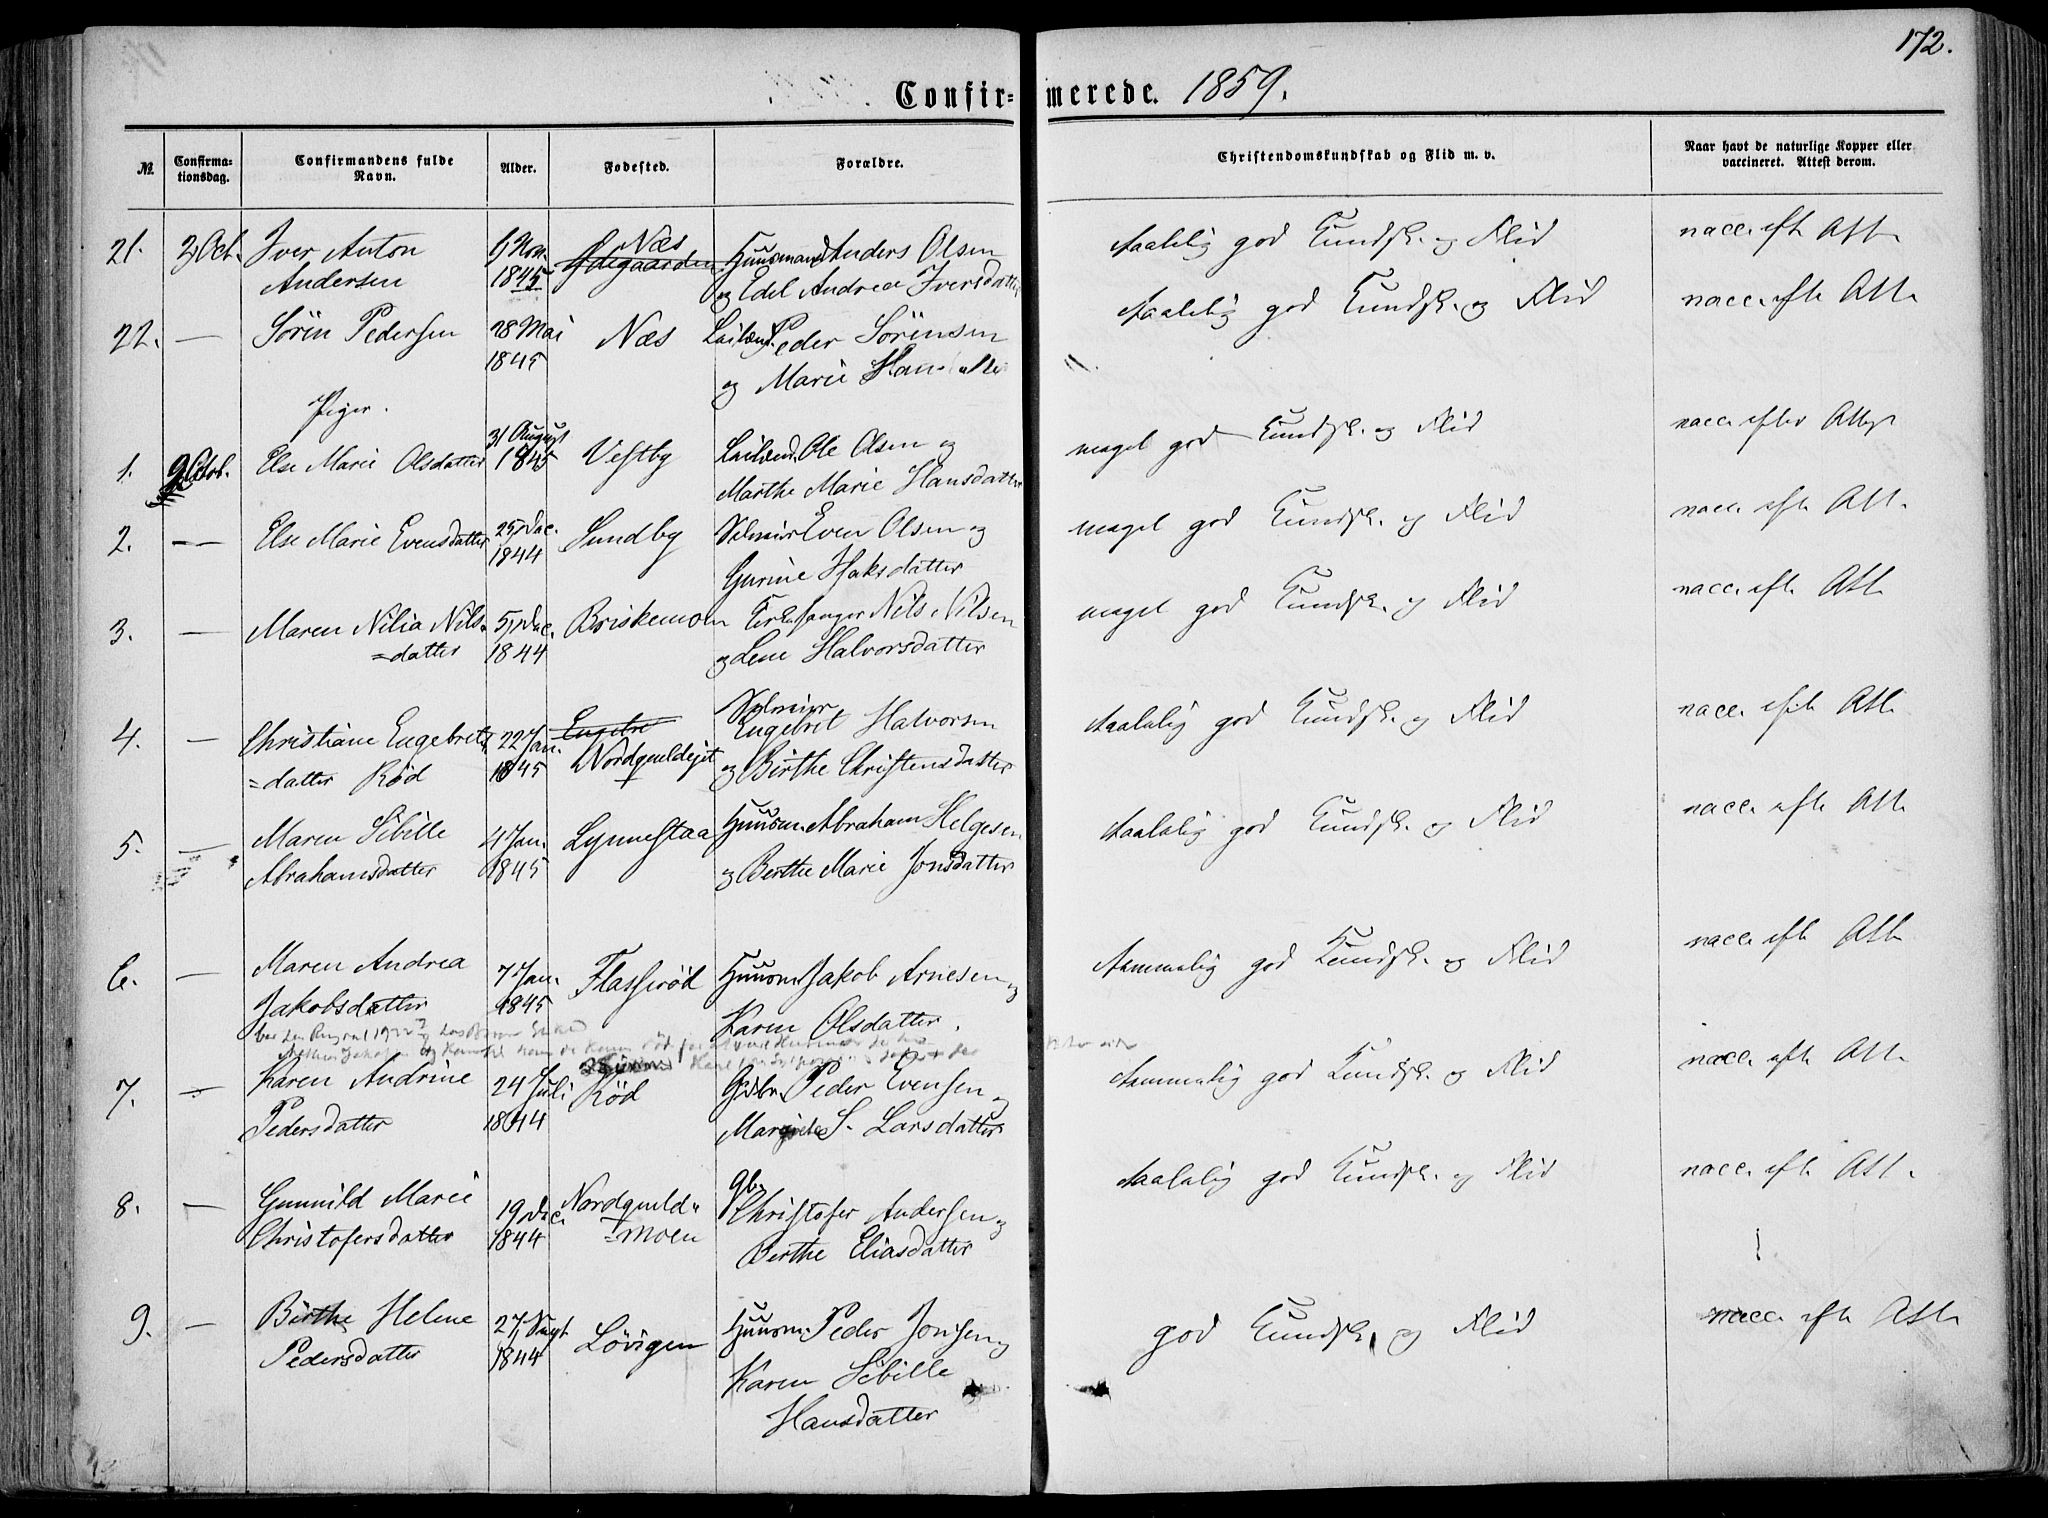 172.
Confir= merede. 1859.
No. Confirma-tionsdag. Confirmandens fulde Navn. Alder. Fødested. Forældre. Christendomskundskab og Flid m. v. Naar havt de naturlige Kopper eller vaccineret. Attest derom.
21. 2 Oct. Iver Anton 9 Nov. Næs Huusmand Anders Olsen Taalelig god Kundsk. og Flid vacc. eft. Att.
Andersen 1845 Ødegaarden og Edel Andrea Iversdatter
22. — Sörin Pedersen 28 Mai Næs Leilænd. Peder Sörensen Taalelig god Kundsk. og Flid vacc. eft. Att.
1845 og Marie
Piger.
1. 2 Octob. Else Marie Olsdatter 31 August Vestby Leilænd. Ole Olsen og meget god Kundsk. og Flid vacc. efter Att.
1845 Marthe Marie Hansdatter
2. — Else Marie Evensdatter 25 Dec. Sundby Selveier Even Olsen og meget god Kundsk. og Flid vacc. eft. Att.
1844 Gurine Isaksdatter
3. — Maren Nilia Nils- 5 Dec. Briskemoen Kirkesanger Nils Nilsen meget god Kundsk. og Flid vacc. eft. Att.
=datter 1844 og Lene Halvorsdatter
4. — Christiane Engebrets 22 Jan. Selveier Engebret Halvorsen Taalelig god Kundsk. og Flid vacc. eft. Att.
=datter Röd 1845 og Birthe Christensdatter
5. — Maren Sibille 4 Jan. Huusm. Abraham Helgesen Taalelig god Kundsk. og Flid vacc. eft. Att.
Abrahamsdatter 1845 og Berthe Marie Jonsdatter
6. — Maren Andrea 7 Jan. Flasseröd Huusm. Jakob Arnesen og Temmelig god Kundsk. og Flid vacc. eft. Att.
Jakobsdatter 1845 Karen Olsdatter.
7. — Karen Andrine 24 Juli Röd Gdbr. Peder Evensen og Temmelig god Kundsk. og Flid vacc. eft. Att.
Pedersdatter 1844 S. Larsdatter
8. — Gunnild Marie 19 Dec. Nordqueld= gb. Christofer Andersen og Taalelig god Kundsk. og Flid vacc. eft. Att.
Christofersdatter 1844 =moen Berthe Eliasdatter
9. — Birthe Helene 27 Sept Lövigen Huusm. Peder Jonsen og god Kundsk. og Flid vacc. eft. Att.
Pedersdatter 1844 Karen Sibille
Hansdatter